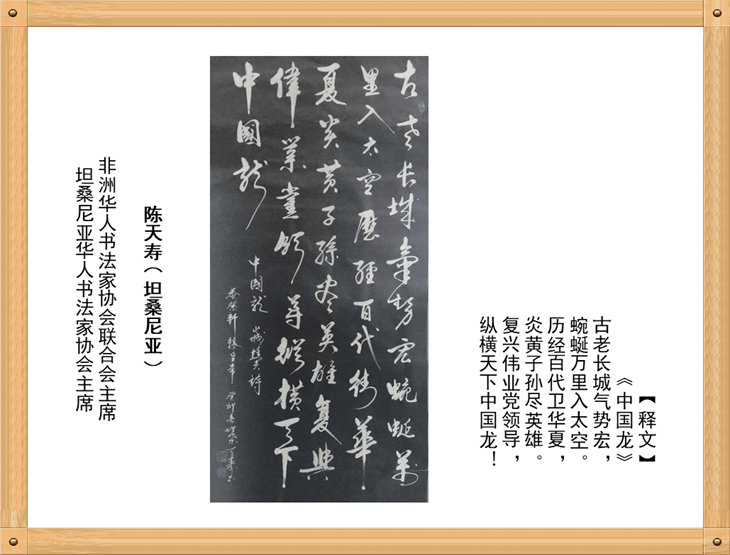 【释文】
《中国龙》
古老长城气势宏，
蜿蜒万里入太空。
历经百代卫华夏，
炎黄子孙尽英雄。
复兴伟业党领导，
纵横天下中国龙！
古老长城氣势宏蜿蜒萬
里入太空歷經百代衛華
夏炎黄子孫尽英雄復興
偉業党领导縱橫天下
中國龙
中國龙
陈天寿（坦桑尼亚）
非洲华人书法家协会联合会主席
坦桑尼亚华人书法家协会主席